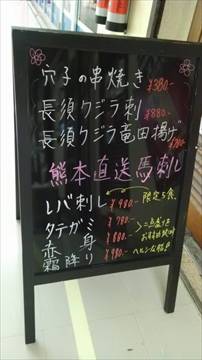 穴子の串焼き ¥380-
長須クジラ刺 ¥880-
長須クジラ竜田揚げ ¥780-
熊本直送馬刺し
レバ刺し ¥980- 限定5食
タテガミ ¥780-
赤身 ¥880-
霜降り ¥980-